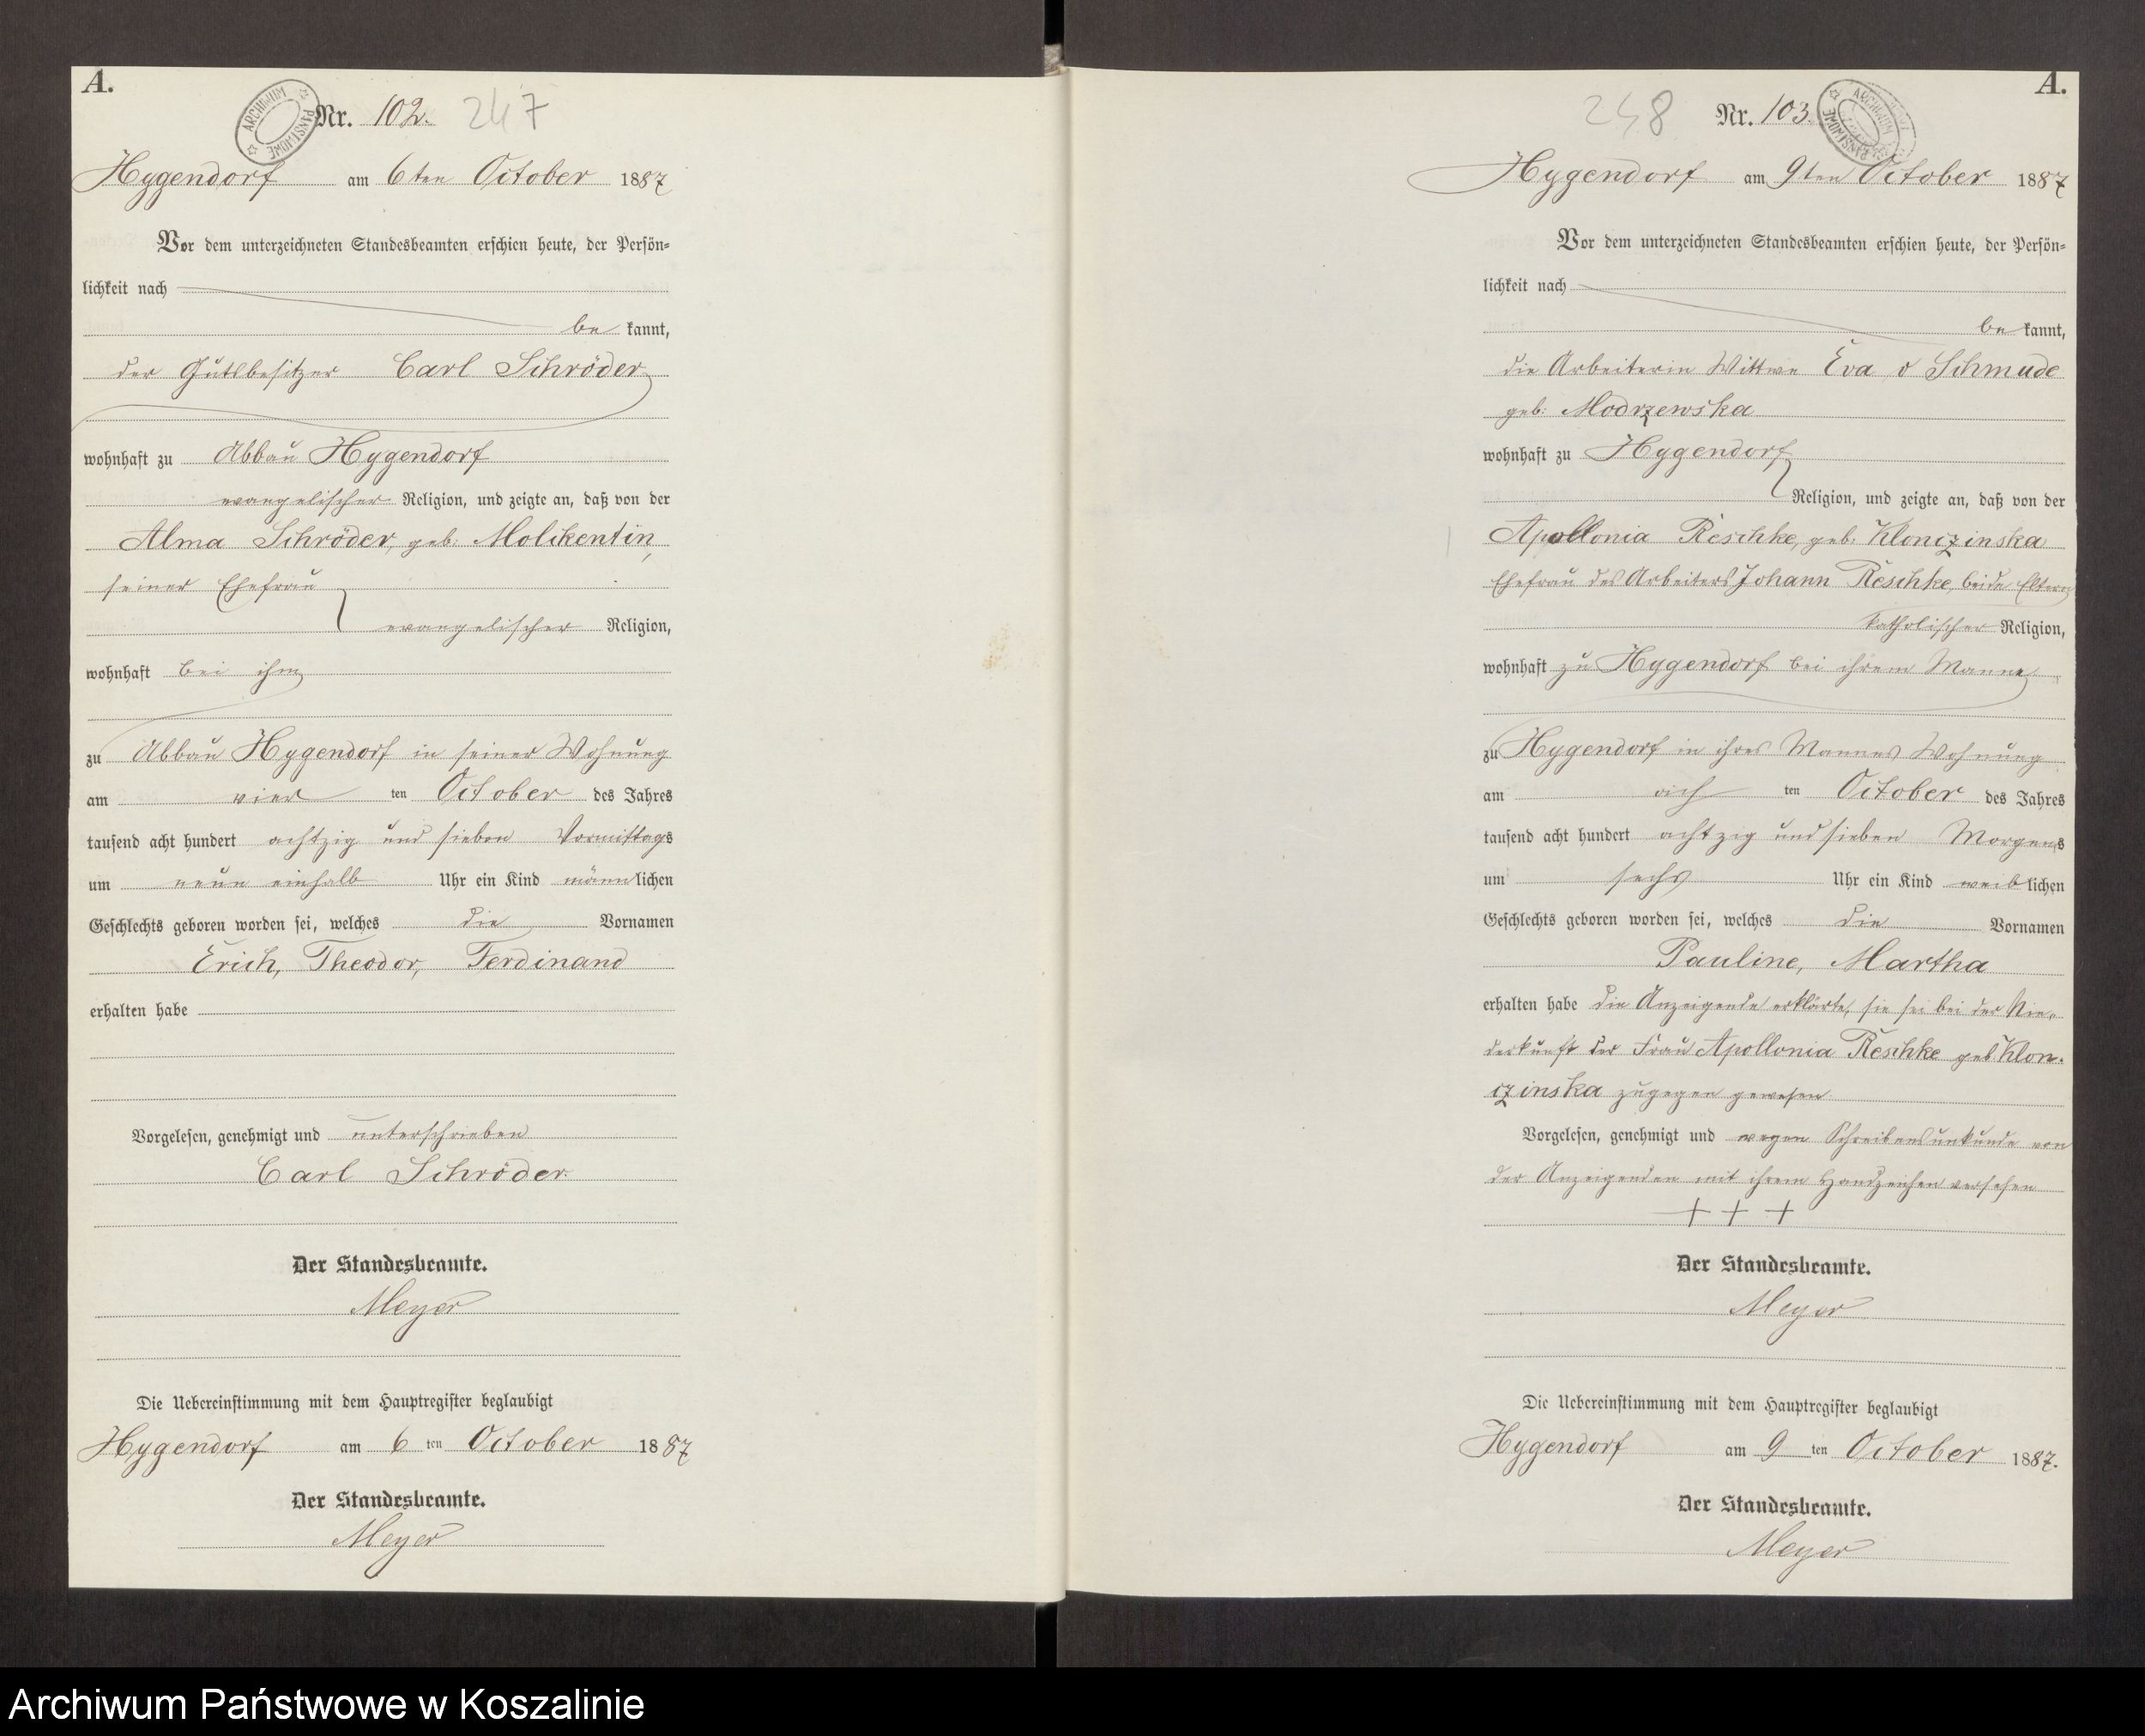 A.
ARCHIWUM PAŃSTWOWE
Nr. 102. 247
Hygendorf am 6ten October 1887
Vor dem unterzeichneten Standesbeamten erschien heute, der Persön=
lichkeit nach
be kannt,
der Gutsbesitzer Carl Schröder
wohnhaft zu Abbau Hygendorf
evangelischer Religion, und zeigte an, daß von der
Alma Schröder, geb. Molikentin,
seiner Ehefrau
evangelischer Religion,
wohnhaft bei ihm
zu Abbau Hygendorf in seiner Wohnung
am vier ten October des Jahres
tausend acht hundert achtzig und sieben Vormittags
um neun einhalb Uhr ein Kind männlichen
Geschlechts geboren worden sei, welches die Vornamen
Erich, Theodor, Ferdinand
erhalten habe
Vorgelesen, genehmigt und unterschrieben
Carl Schröder.
Der Standesbeamte.
Meyer
Die Uebereinstimmung mit dem Hauptregister beglaubigt
Hygendorf am 6 ten October 1887
Der Standesbeamte.
Meyer
A.
248 Nr. 103.
ARCHIWUM PAŃSTWOWE
Hygendorf am 9ten October 1887
Vor dem unterzeichneten Standesbeamten erschien heute, der Persön=
lichkeit nach
be kannt,
die Arbeiterin Wittwe Eva v Schmude
geb: Modrzewska
wohnhaft zu Hygendorf
Religion, und zeigte an, daß von der
Apollonia Reschke, geb: Klonczinska
Ehefrau des Arbeiters Johann Reschke, beide Eltern
katholischer Religion,
wohnhaft zu Hygendorf bei ihrem Manne
zu Hygendorf in ihres Mannes Wohnung
am ach ten October des Jahres
tausend acht hundert achtzig und sieben Morgens
um sechs Uhr ein Kind weiblichen
Geschlechts geboren worden sei, welches die Vornamen
Pauline, Martha
erhalten habe die Anzeigende erklärte, sie sei bei der Nie=
derkunft der Frau Apollonia Reschke geb Klon=
czinska zugegen gewesen
Vorgelesen, genehmigt und wegen Schreibensunkunde von
der Anzeigenden mit ihrem Handzeichen versehen
+ + +
Der Standesbeamte.
Meyer
Die Uebereinstimmung mit dem Hauptregister beglaubigt
Hygendorf am 9 ten October 1887.
Der Standesbeamte.
Meyer
Archiwum Państwowe w Koszalinie